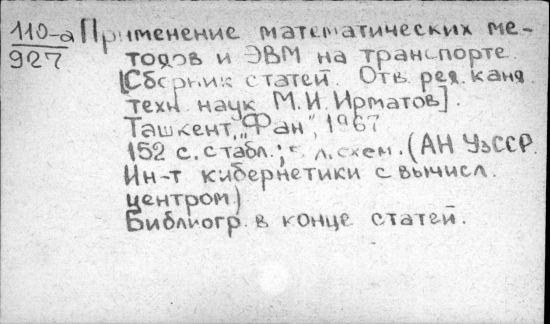 110-а Применение математических ме-
927 тодов и ЭВМ на транспорте.
[Сборник статей. Отв. ред. канд.
техн. наук М.И. Ирматов].
Ташкент, "Фан", 1967
152 с. с табл.; л. схем. (АН УзССР.
Ин-т кибернетики с вычисл.
центром)
Библиогр. в конце статей.